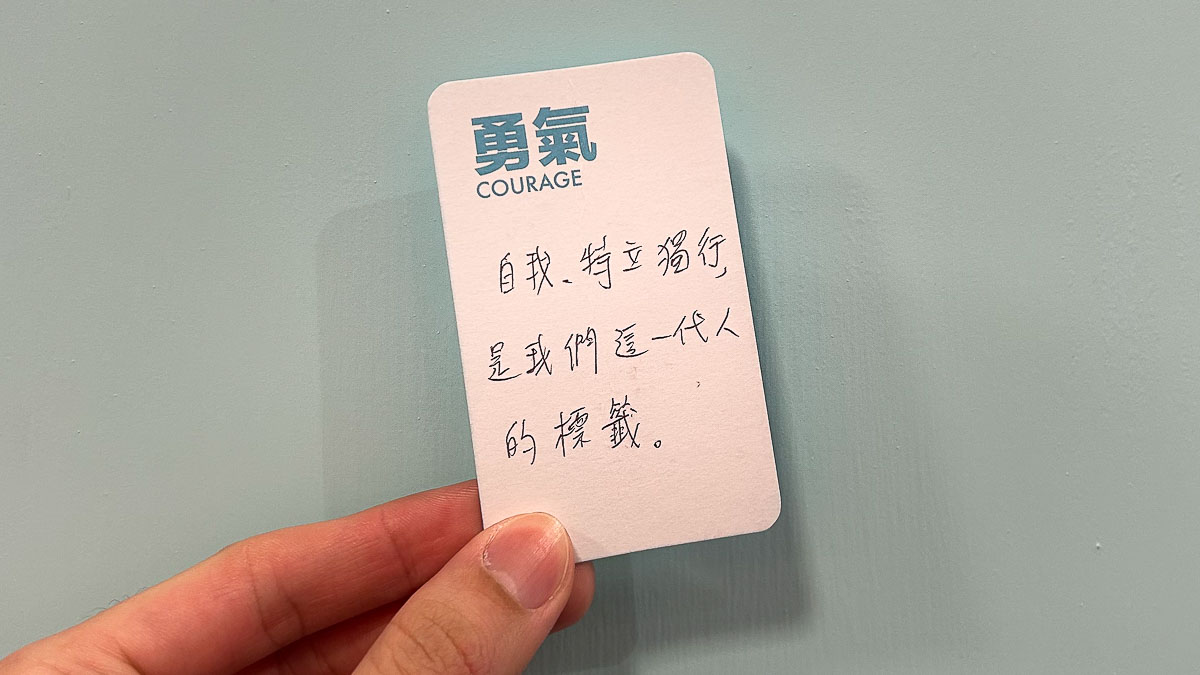 勇氣
COURAGE
自我、特立獨行,
是我們這一代人
的標籤。